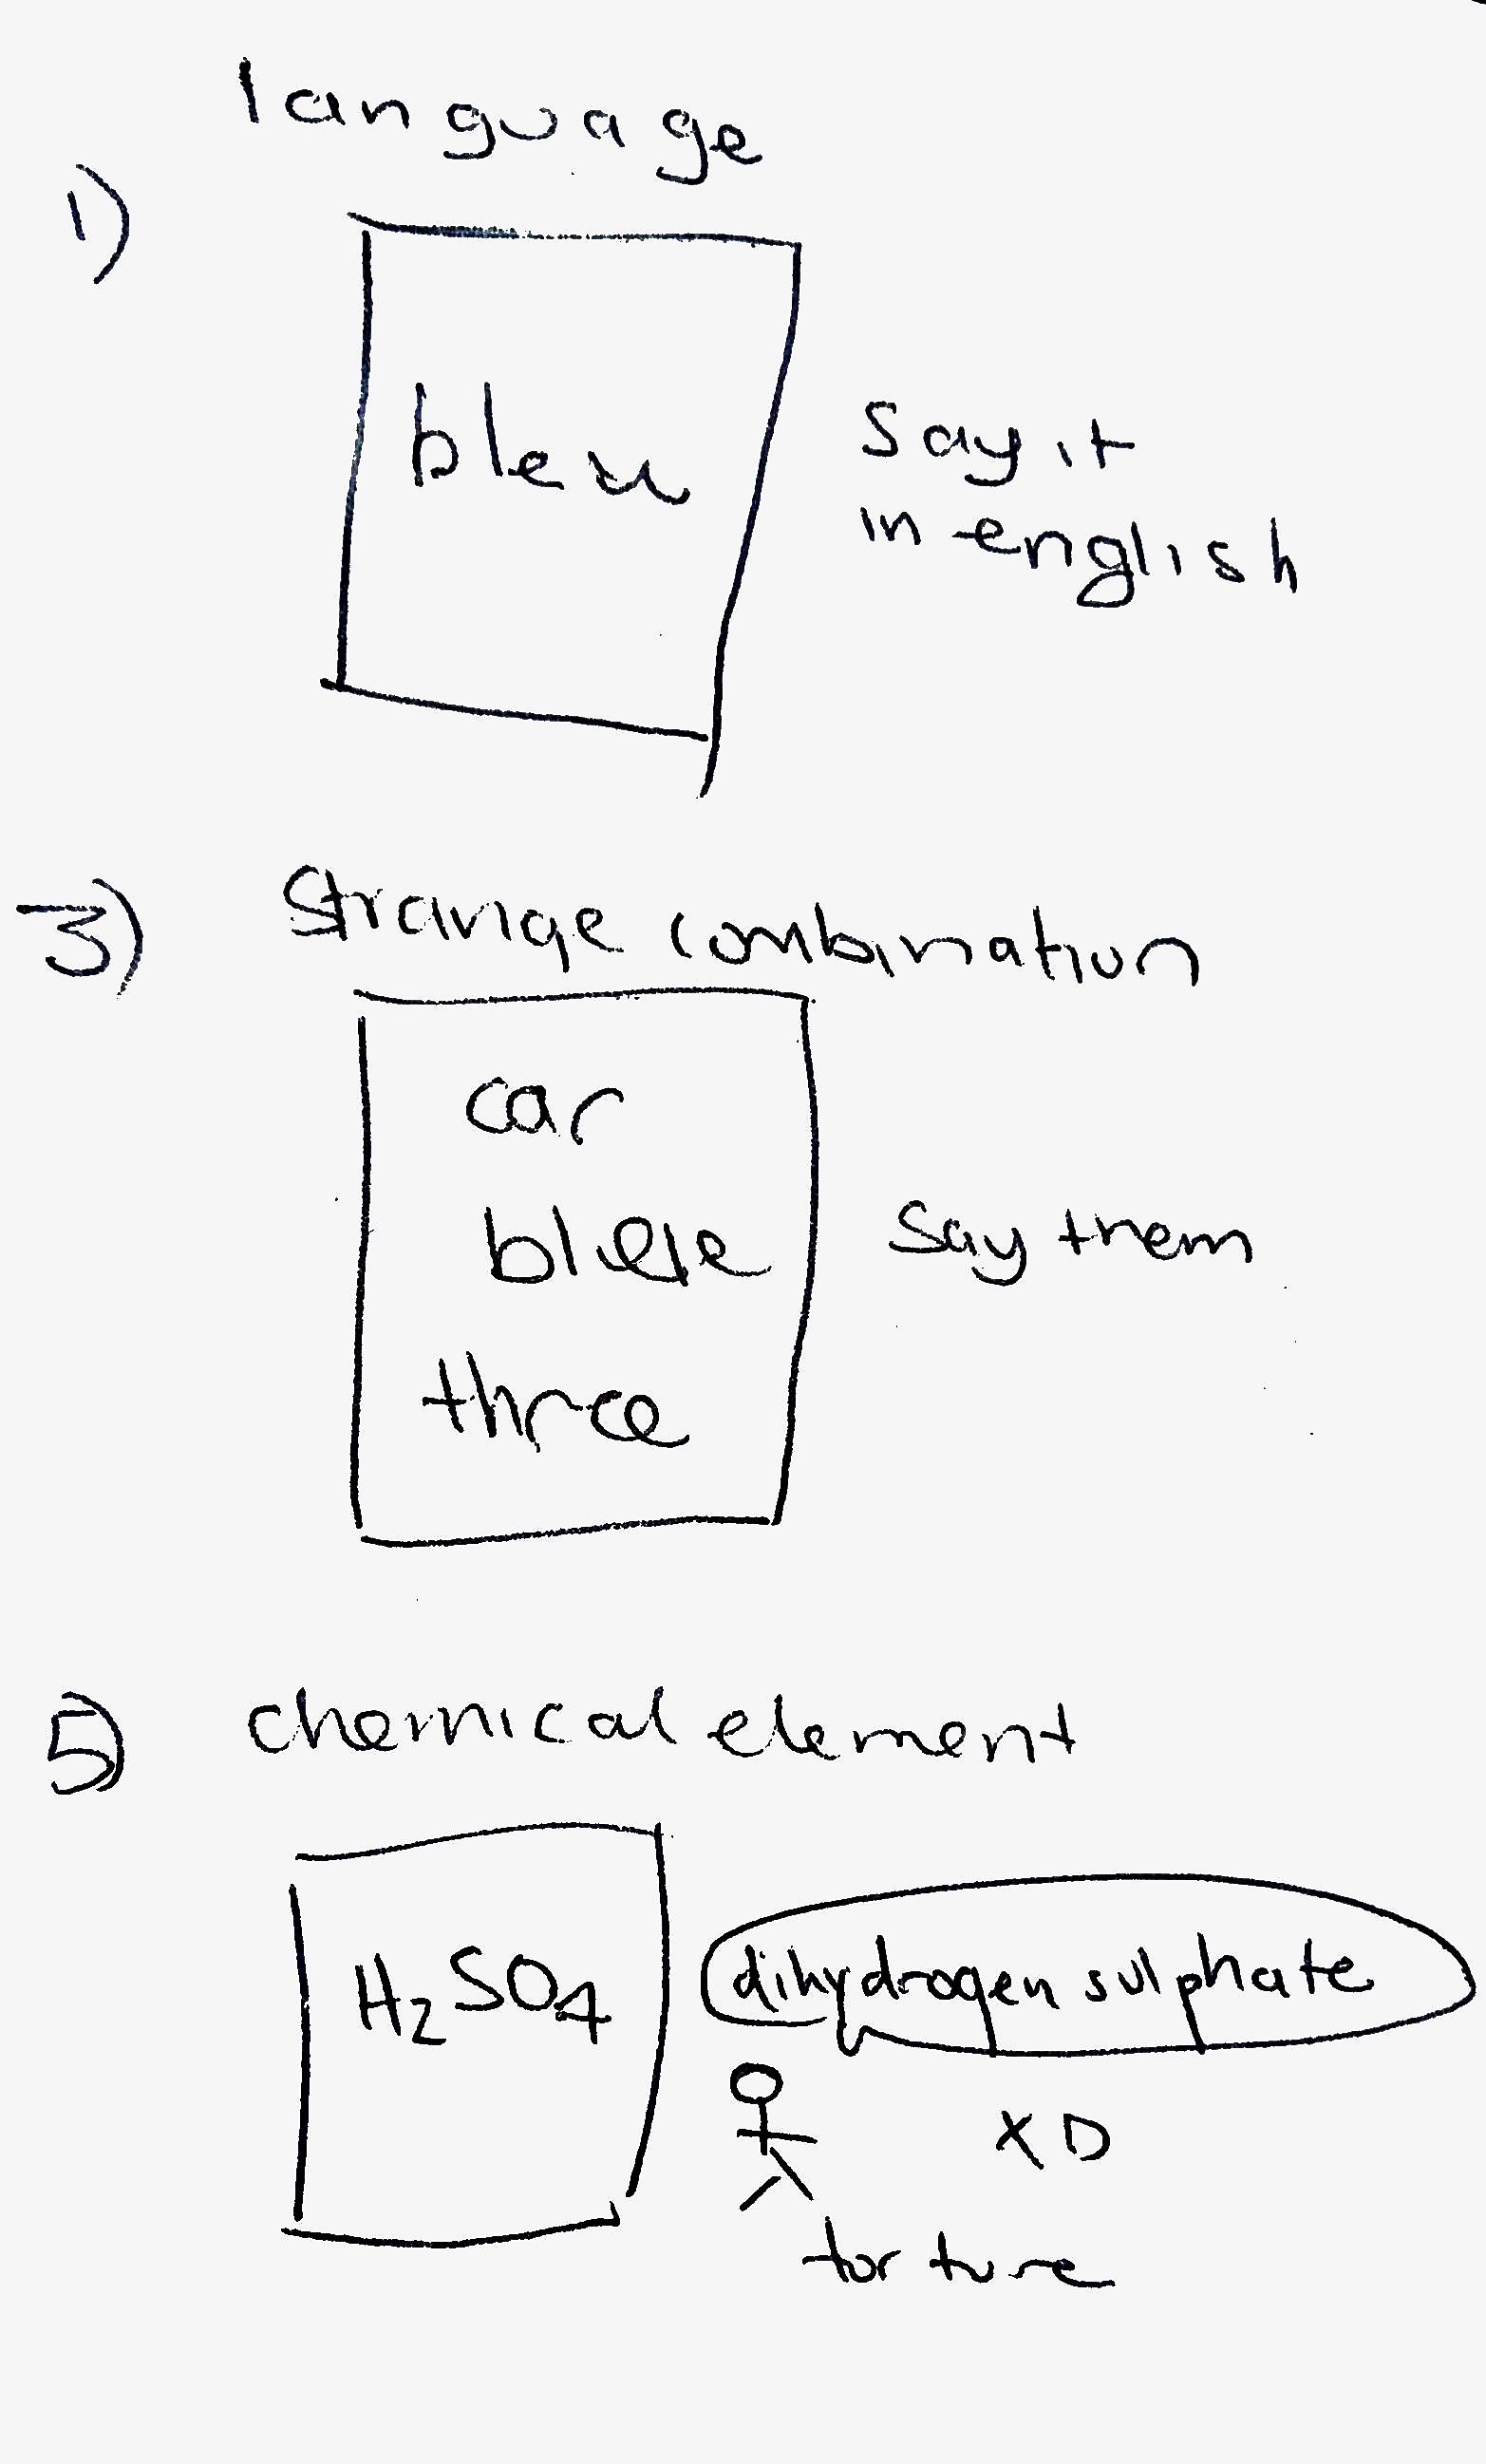 language
1)
bleu
say it
in english
3) Strange combination
car
blue
three
say them
5) chemical element
H₂SO₄
dihydrogen sulphate
XD
torture